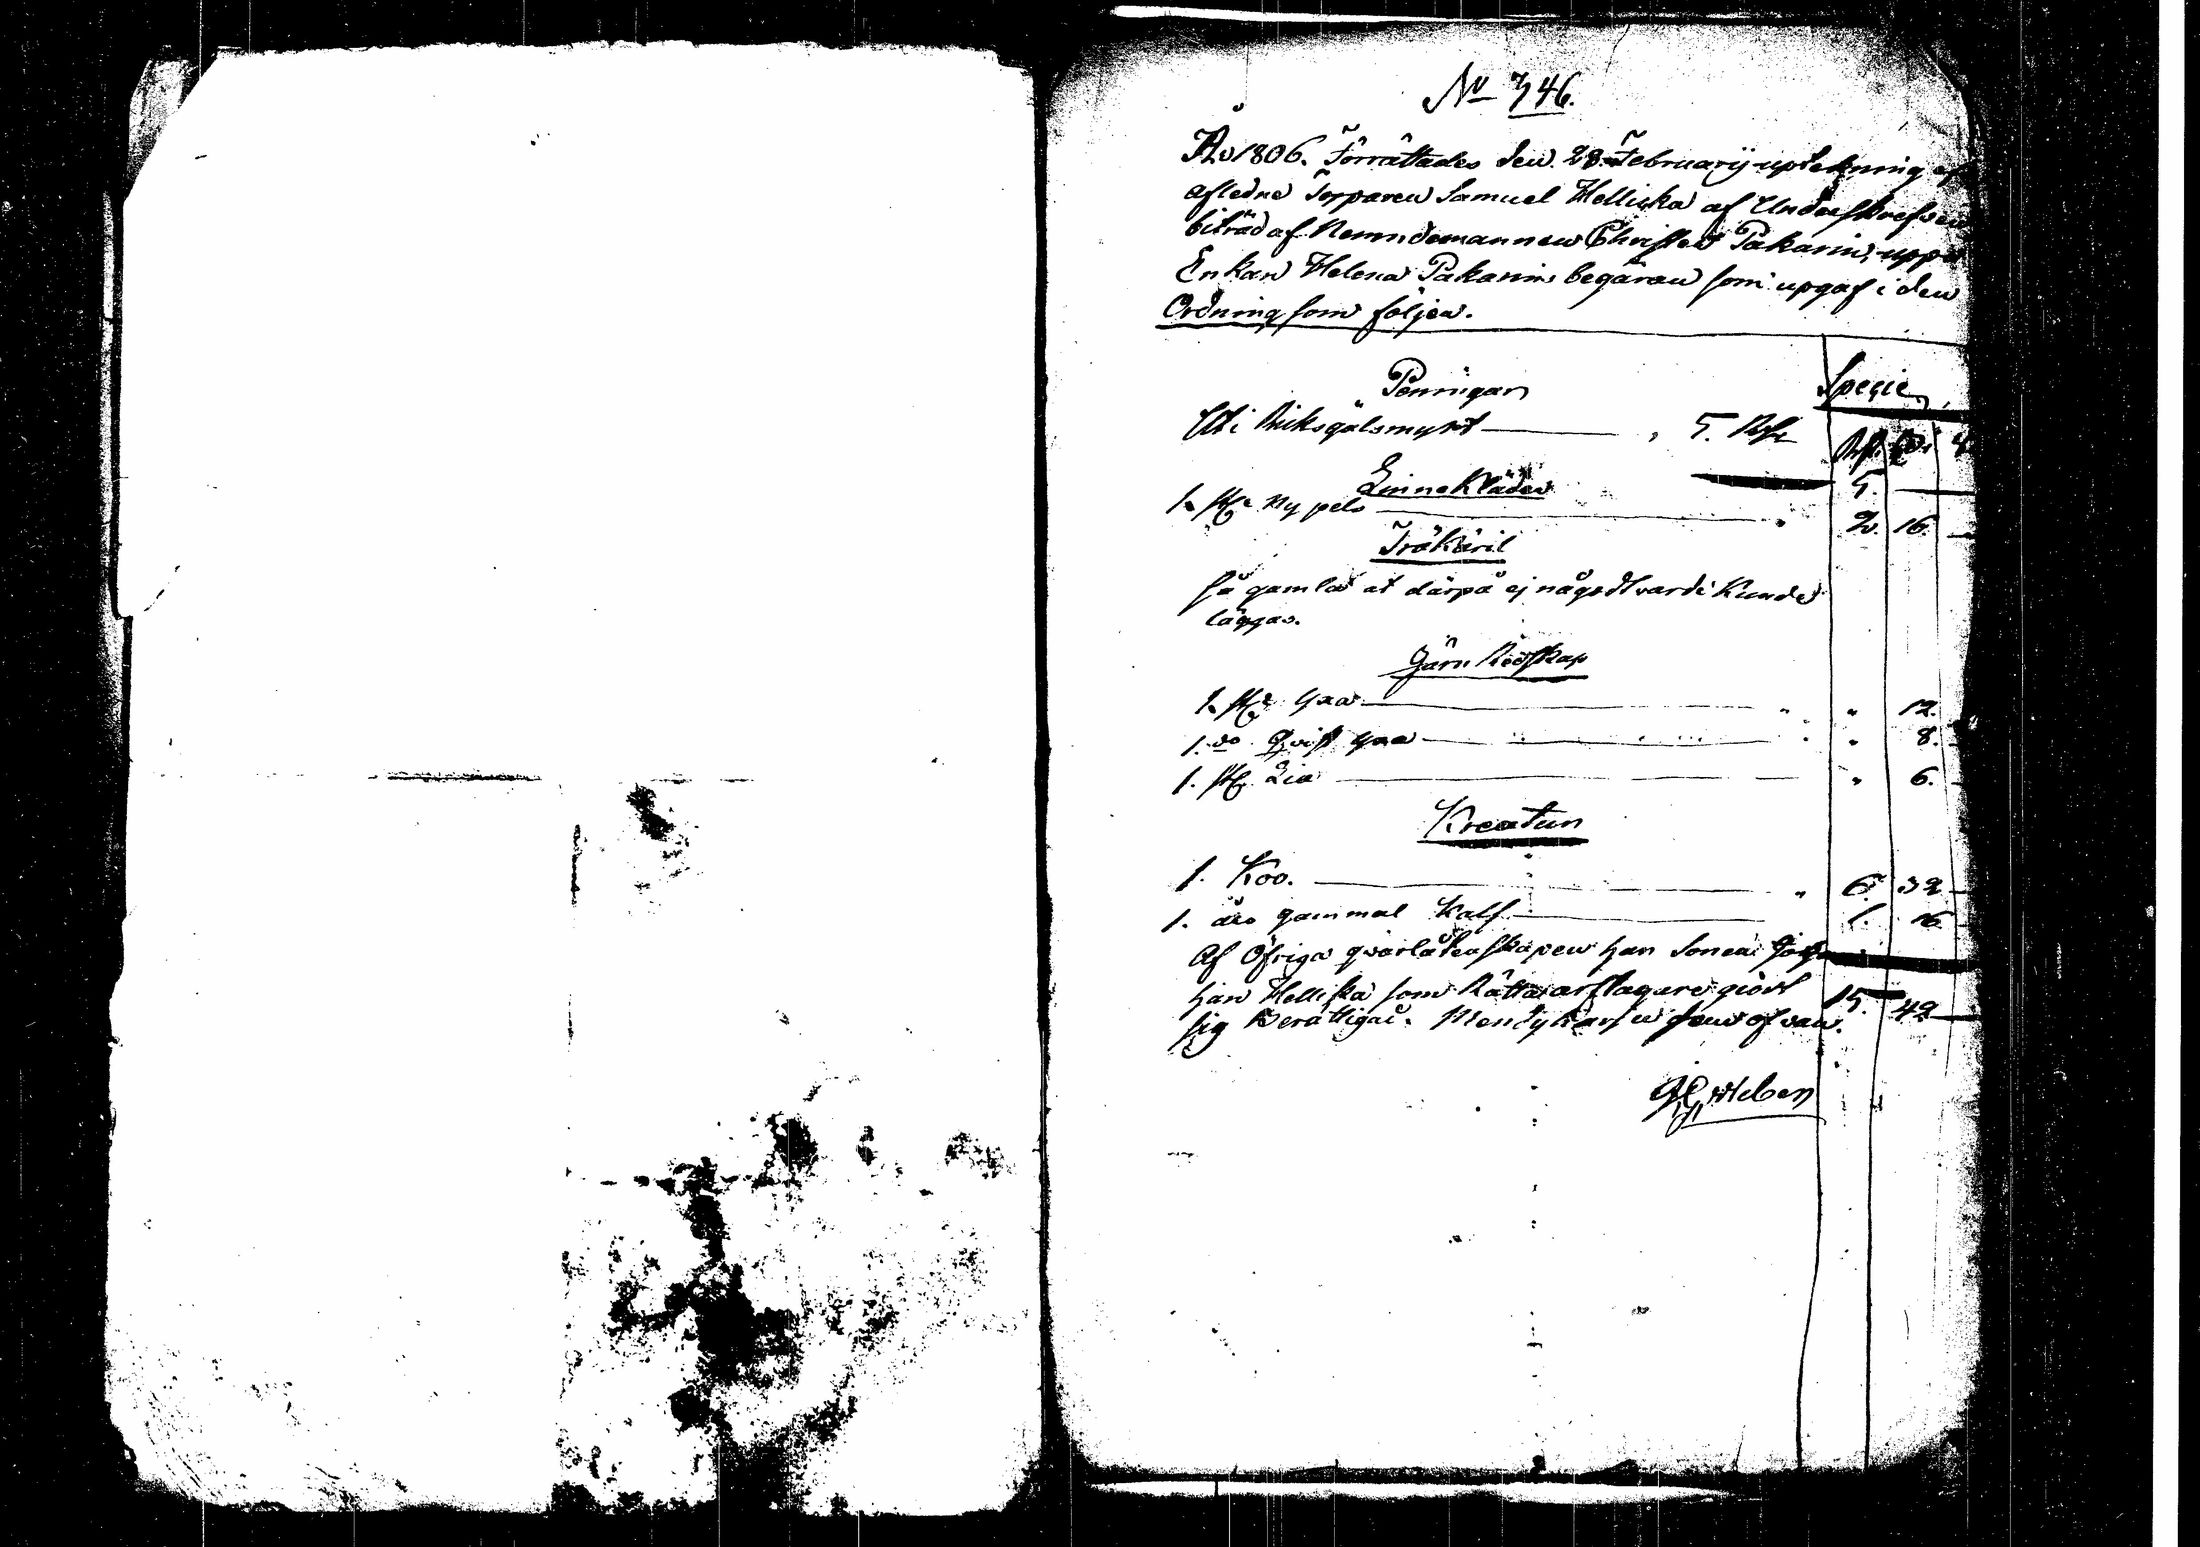 No 346.
Ao 1806. Förrättades den 28 Februarij uptekning af
afledne Torparen Samuel Helliska af
biträd af Nemndemannen Christer Pakarin, uppå
Enkan Helena Pakarin begäran som upgaf i den
Ordning som följer.
Penningar Specie
Uti Riksgälsmynt 5. Rdr
Rdr.
Linnekläder 5.
1. st. Ny pels 2. 16.
Träkäril
så gamla at därpå ej någodt värde kunde
läggas.
Järn Redskap
1. st. yxa " 12.
1. do Qvist yxa " 8.
1. st. Lia " 6.
Kreatur
1. Koo. 6. 32
1. års gammal Kalf 1. 16
Af Öfriga qvarlåtenskapen har Sonen
han Helliska som Rätta arftagare giört
sig Berättigad. 15. 42